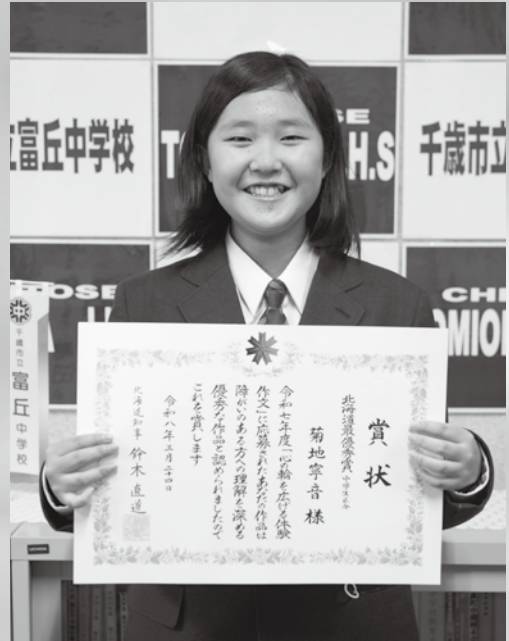 立富丘中学校
千歳市立
CHI
千歳市立
富丘
中学校
賞状
北海道最優秀賞 中学生区分
菊地寧音 様
令和七年度「心の輪を広げる体験
作文」に応募されたあなたの作品は
障がいのある方への理解を深める
優秀な作品と認められましたので
これを賞します
北海道知事 鈴木直道